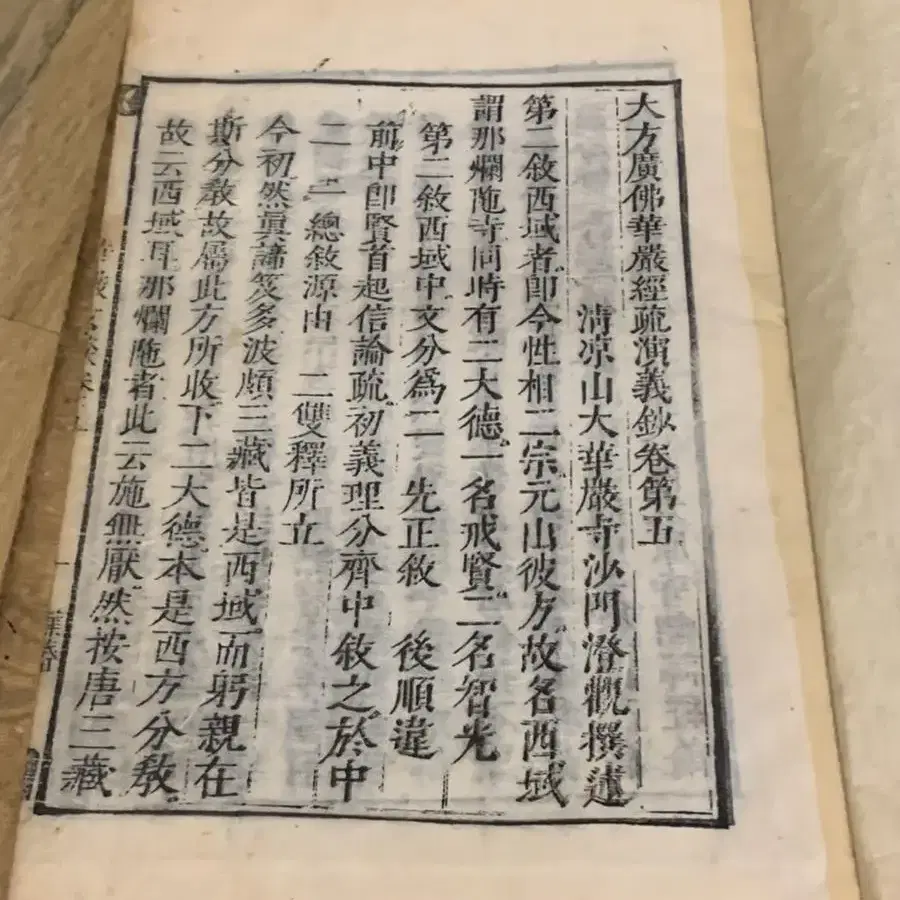 大方廣佛華嚴經疏演義鈔卷第五
清凉山大華嚴寺沙門澄觀撰述
第二敘西域者卽今性相二宗元出彼方故名西域
謂那爛陁寺同時有二大德一名戒賢二名智光
第二敘西域中文分爲二 先正敘 後順違
前中卽賢首起信論疏初義理分齊中敘之於中
二 一總敘源由 二雙釋所立
今初然眞諦笈多波頗三藏皆是西域而躬親在
斯分教故屬此方所收下二大德本是西方分教
故云西域耳那爛陁者此云施無厭然按唐三藏